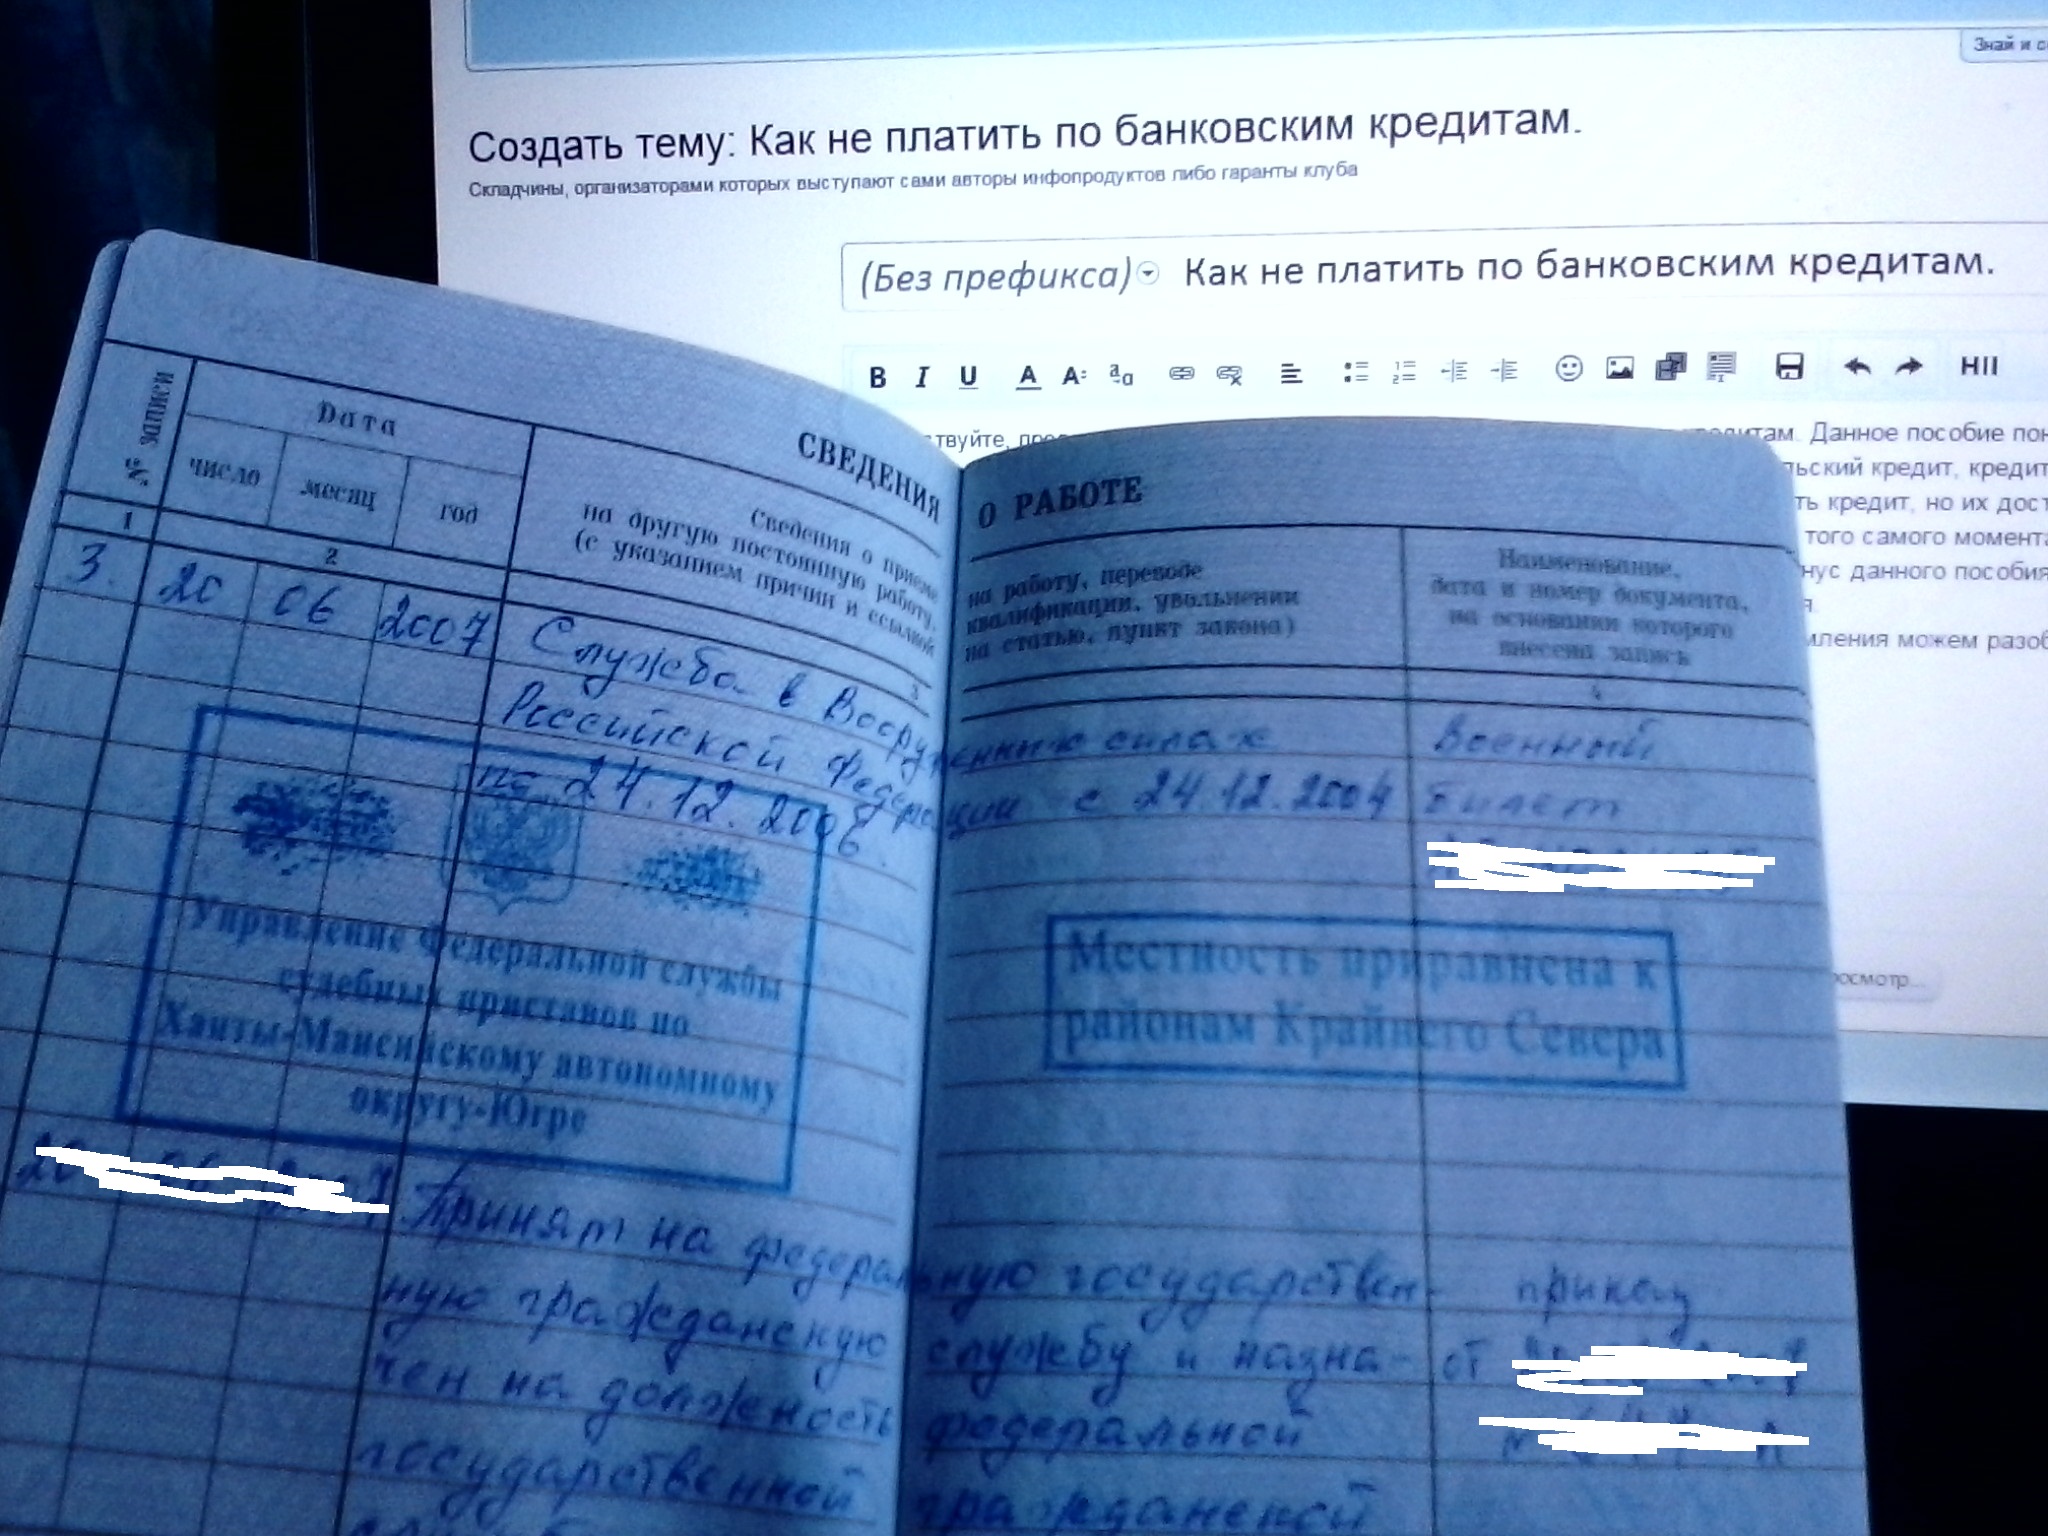 Знай и
Создать тему: Как не платить по банковским кредитам.
Складчины, организаторами которых выступают сами авторы инфопродуктов либо гаранты клуба
(Без префикса) Как не платить по банковским кредитам.
B I U A A aa НП
ствуйте, кредитам. Данное пособие
кредит,
ть кредит, но их
того самого момента
данного пособия
можем
СВЕДЕНИЯ О РАБОТЕ
№ записи
Дата
число месяц год
Сведения о приеме на работу, переводе
на другую постоянную работу, квалификации, увольнении
(с указанием причин и ссылкой на статью, пункт закона)
Наименование,
дата и номер документа,
на основании которого
внесена запись
1 2 3 4
3. 20 06 2007 Служба в Вооруженных силах Военный
Российской Федерации с 24.12.2004 билет
по 24.12.2006.
Управление Федеральной службы
судебных приставов по
Ханты-Мансийскому автономному
округу-Югре
Местность приравнена к
районам Крайнего Севера
Принят на федеральную государствен- приказ
ную гражданскую службу и назна- от
чен на должность федеральной
государственной гражданской